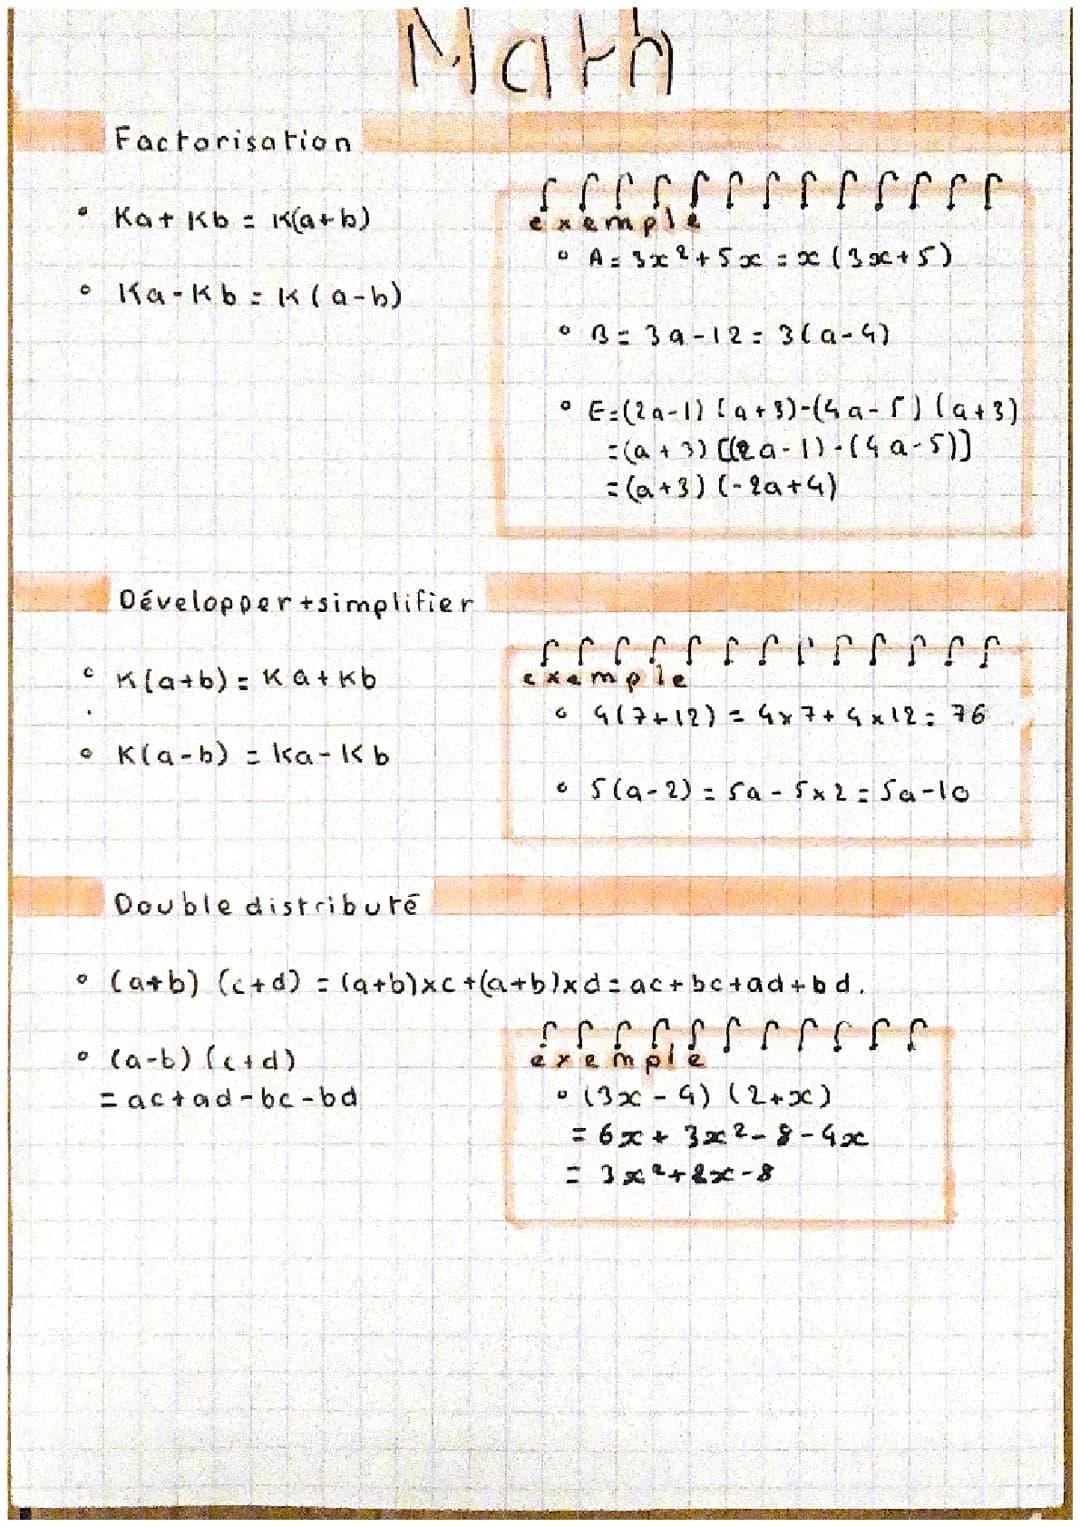 Math
Factorisation
• Ka + Kb = K(a+b)
• Ka - Kb = K(a-b)
exemple
• A = 3x² + 5x = x(3x+5)
• B = 3a - 12 = 3(a-4)
• E = (2a-1)(a+3)-(4a-5)(a+3)
= (a+3)[(2a-1)-(4a-5)]
= (a+3)(-2a+4)
Développer + simplifier
• K(a+b) = Ka + Kb
• K(a-b) = Ka - Kb
exemple
• 4(7+12) = 4x7 + 4x12 = 76
• 5(a-2) = 5a - 5x2 = 5a-10
Double distributé
• (a+b) (c+d) = (a+b)xc + (a+b)xd = ac + bc + ad + bd.
• (a-b) (c+d)
= ac + ad - bc - bd
exemple
• (3x - 4) (2+x)
= 6x + 3x² - 8 - 4x
= 3x² + 2x - 8